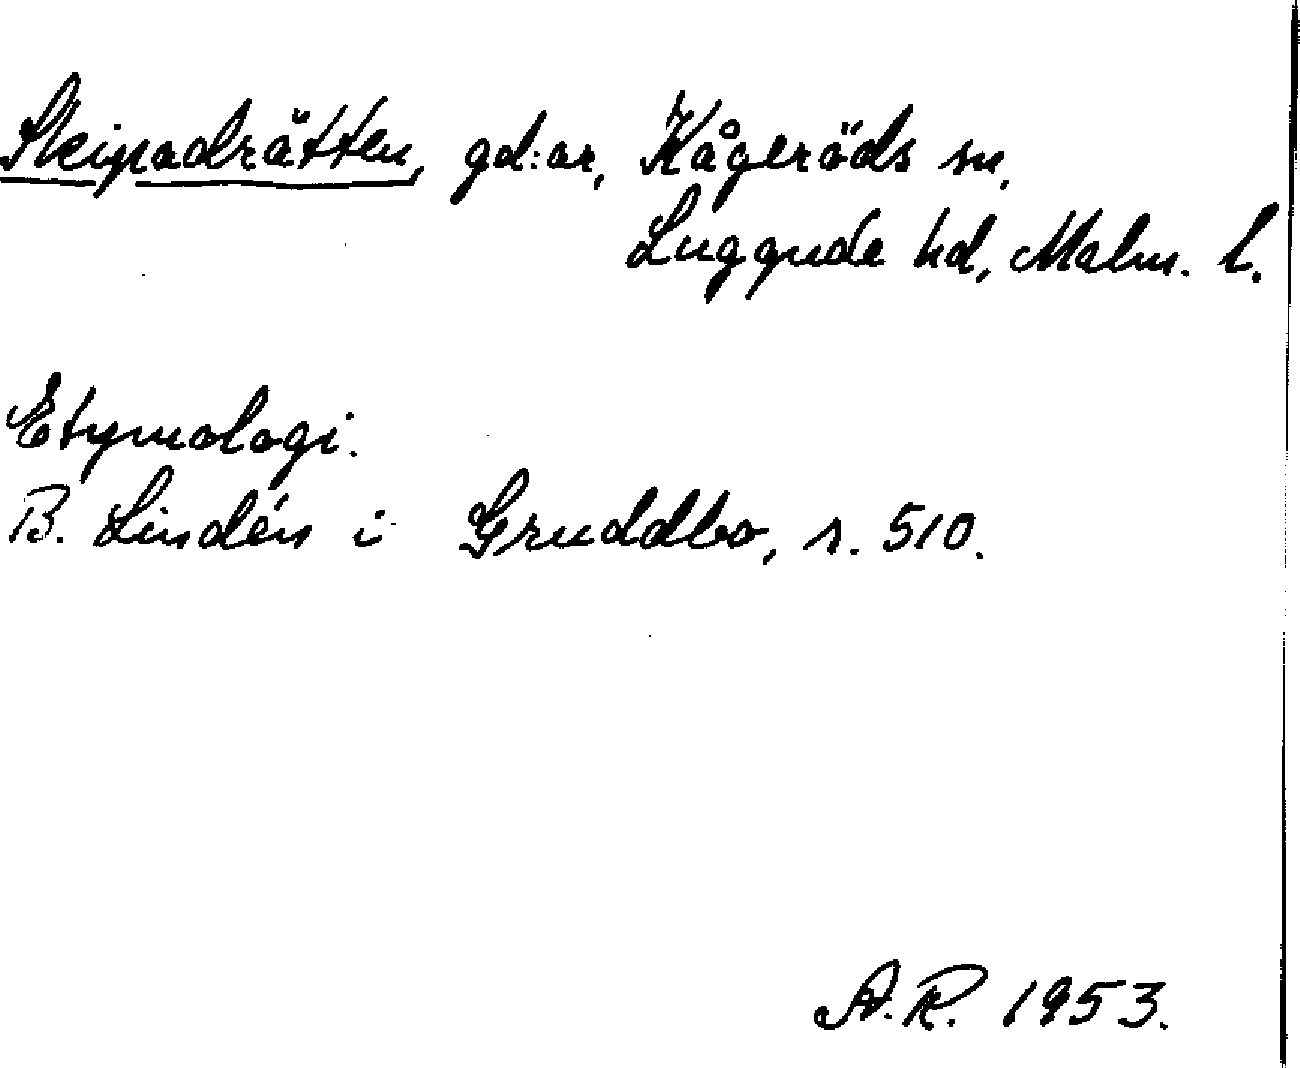 Skeipadrätten, gd:ar, Kågeröds sn,
Luggude hd, Malm. l.
Etymologi.
B. Lindén i Gruddbo, s. 510.
A.R. 1953.